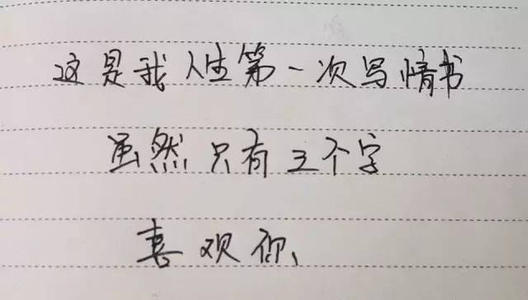 这是我人生第一次写情书
虽然只有三个字
喜欢你、